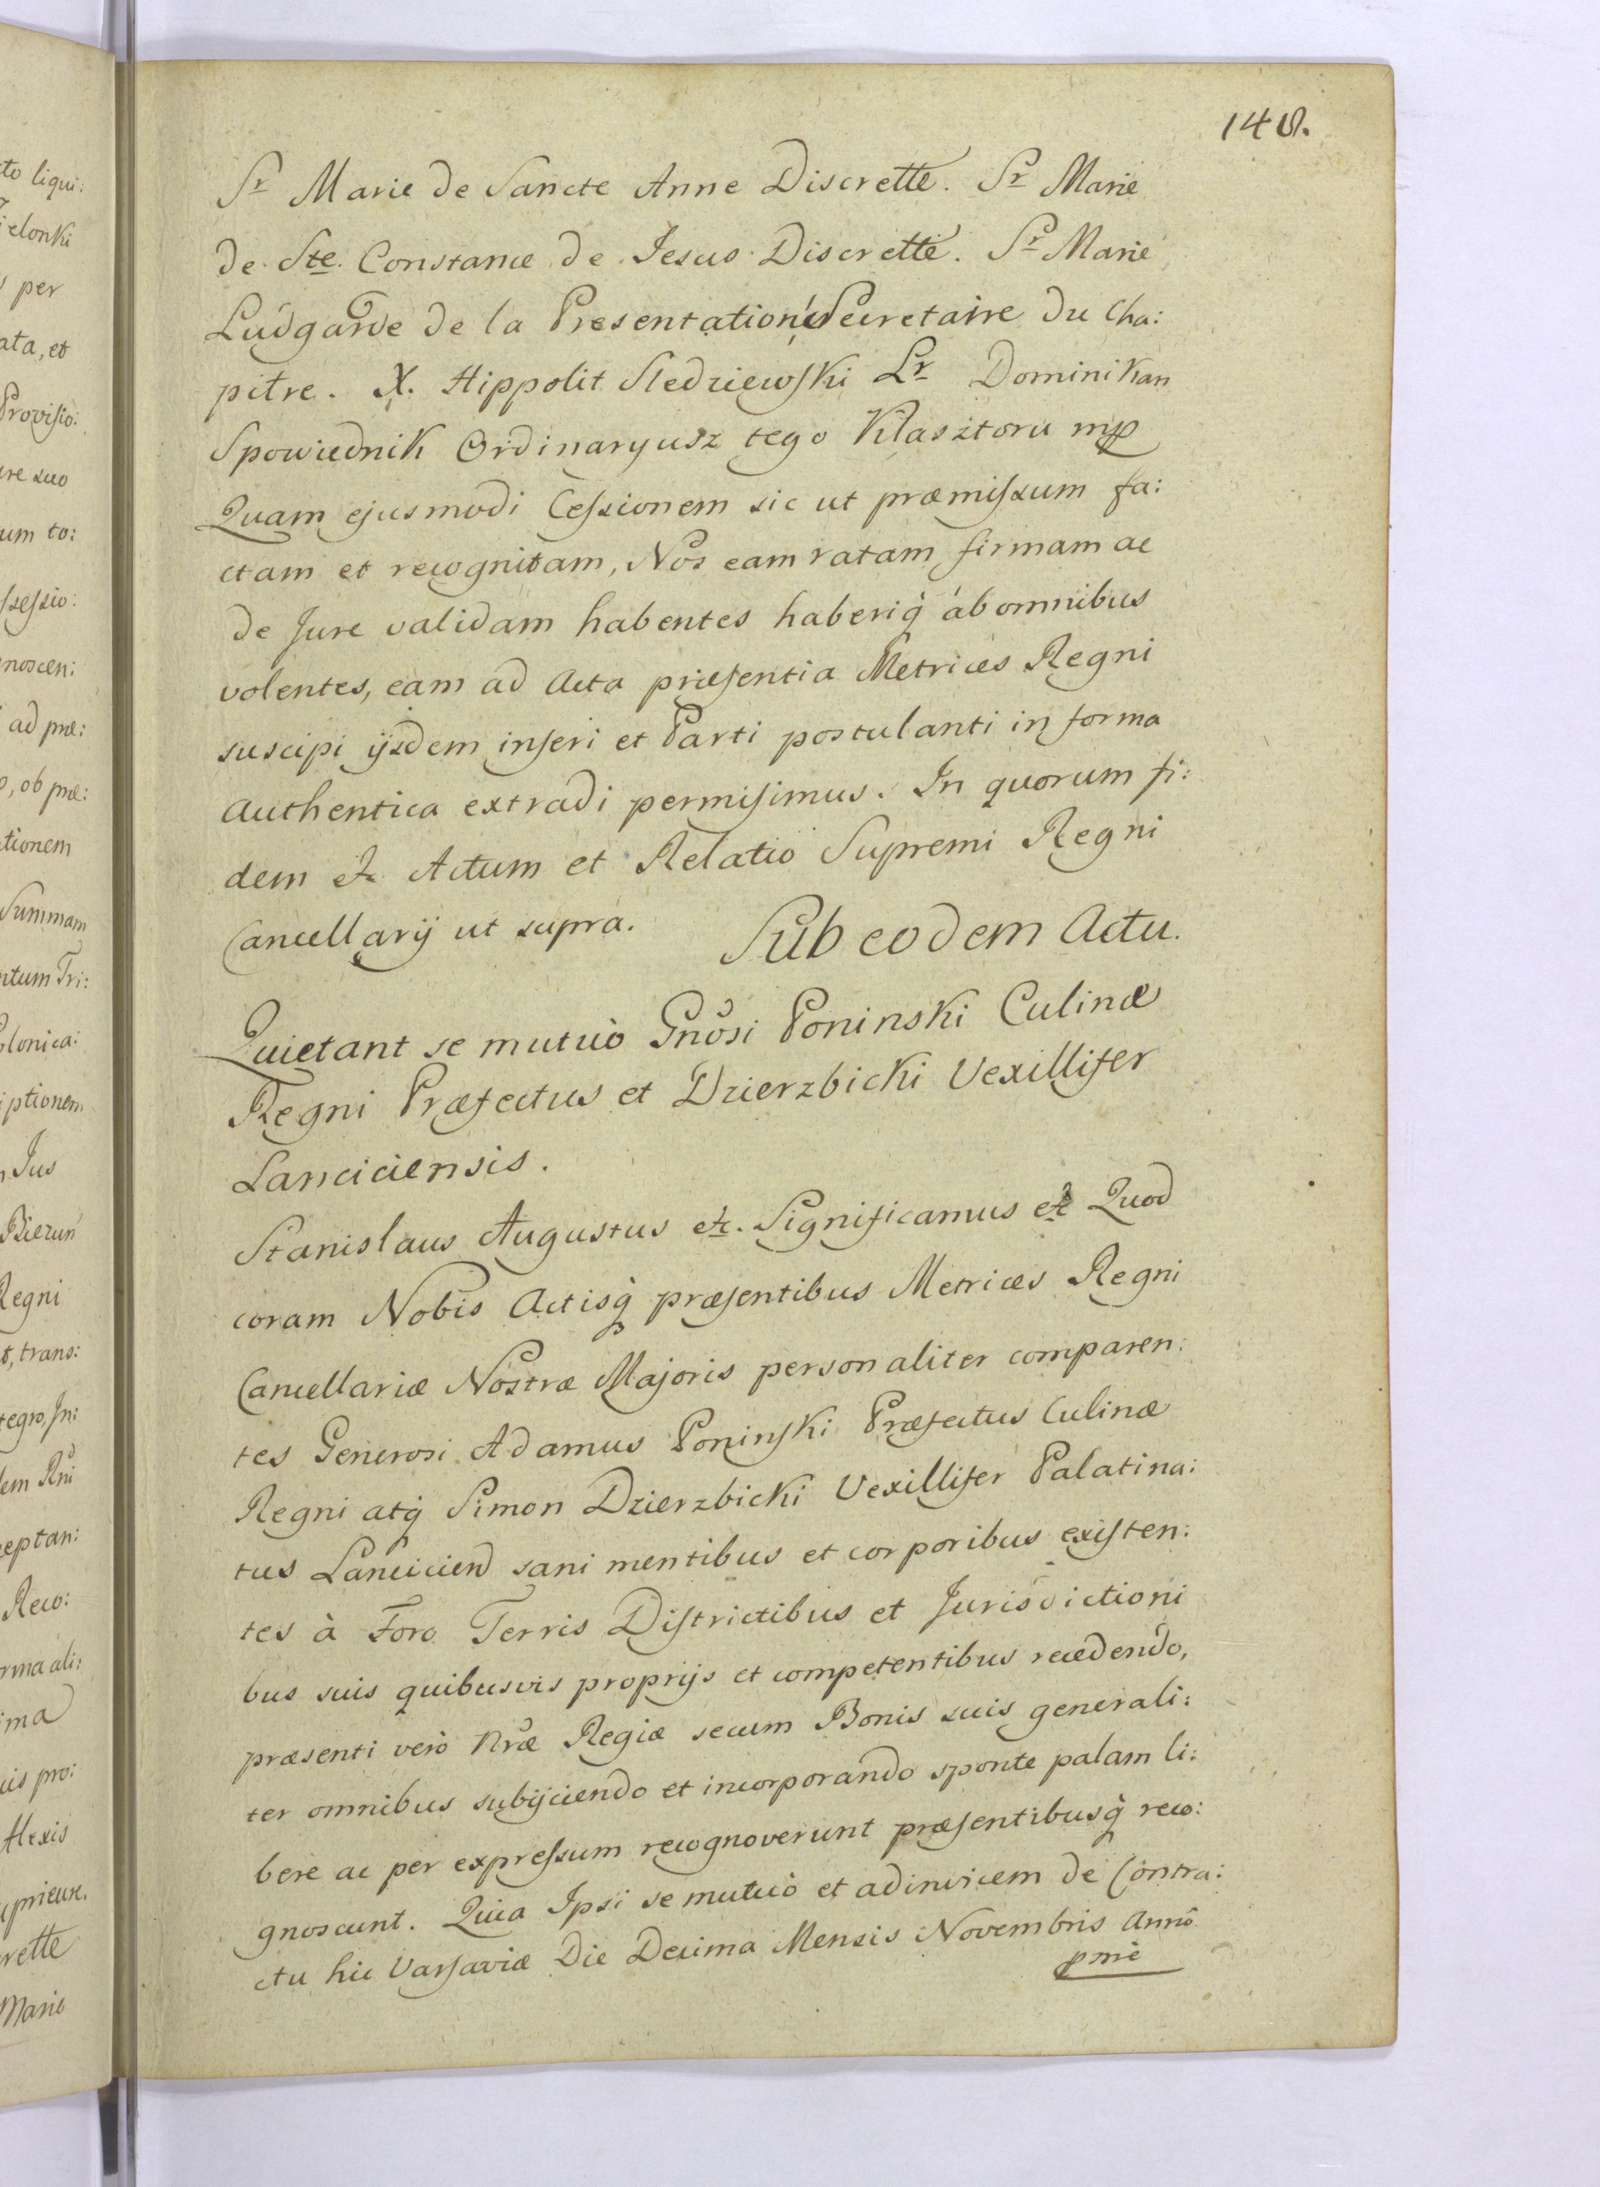 148.
Sr Marie de Sancte Anne Discrette. Sr Marie
de Ste Constance de Jesus Discrette. Sr Marie
Ludgarde de la Presentation Secretaire du Cha:
pitre. X. Hippolit Sledziewski Lr Dominikan
Spowiednik Ordinaryusz tego Klasztoru mp
Quam ejusmodi Cessionem sic ut præmissum fa:
ctam et recognitam, Nos eam ratam firmam ac
de Jure validam habentes haberiq̀ ab omnibus
volentes, eam ad Acta præsentia Metrices Regni
suscipi ijsdem inseri et Parti postulanti in forma
Authentica extradi permisimus. In quorum fi:
dem etc Actum et Relatio Supremi Regni
Cancellarij ut supra.
Sub eodem Actu.
Quietant se mutuò Gnosi Poninski Culinæ
Regni Præfectus et Dzierzbicki Vexillifer
Lanciciensis.
Stanislaus Augustus etc. Significamus etc Quod
coram Nobis Actisq̀ præsentibus Metrices Regni
Cancellariæ Nostræ Majoris personaliter comparen:
tes Generosi Adamus Poninski Præfectus Culinæ
Regni atq̀ Simon Dzierzbicki Vexillifer Palatina:
tus Lancicien sani mentibus et corporibus existen:
tes à Foro Terris Districtibus et Jurisdictioni
bus suis quibusvis proprijs et competentibus recedendo,
præsenti verò Nræ Regiæ secum Bonis suis generali:
ter omnibus subijciendo et incorporando sponte palam li:
bere ac per expressum recognoverunt præsentibusq̀ reco:
gnoscunt. Quia Ipsi se mutuò et adinvicem de Contra:
ctu hic Varsaviæ Die Decima Mensis Novembris Anno
pnte